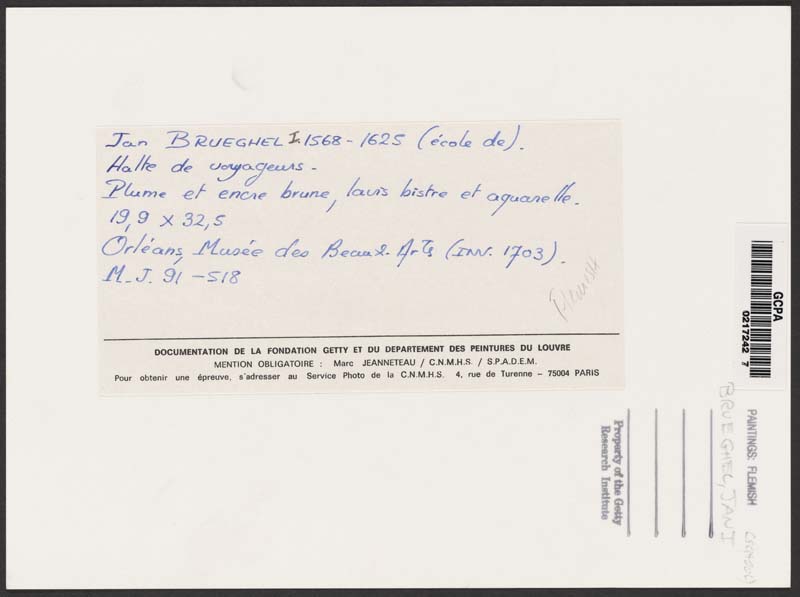 Jan BRUEGHEL I. 1568-1625 (école de).
Halte de voyageurs -
Plume et encre brune, lavis bistre et aquarelle.
19,9 x 32,5
Orléans, Musée des Beaux-Arts (INV. 1703).
M.J. 91-518
Flemish
DOCUMENTATION DE LA FONDATION GETTY ET DU DEPARTEMENT DES PEINTURES DU LOUVRE
MENTION OBLIGATOIRE : Marc JEANNETEAU / C.N.M.H.S. / S.P.A.D.E.M.
Pour obtenir une épreuve, s'adresser au Service Photo de la C.N.M.H.S. 4, rue de Turenne - 75004 PARIS
GCPA
0217242 7
PAINTINGS: FLEMISH
(SCHOOL)
BRUEGHEL, JAN I
Property of the Getty
Research Institute